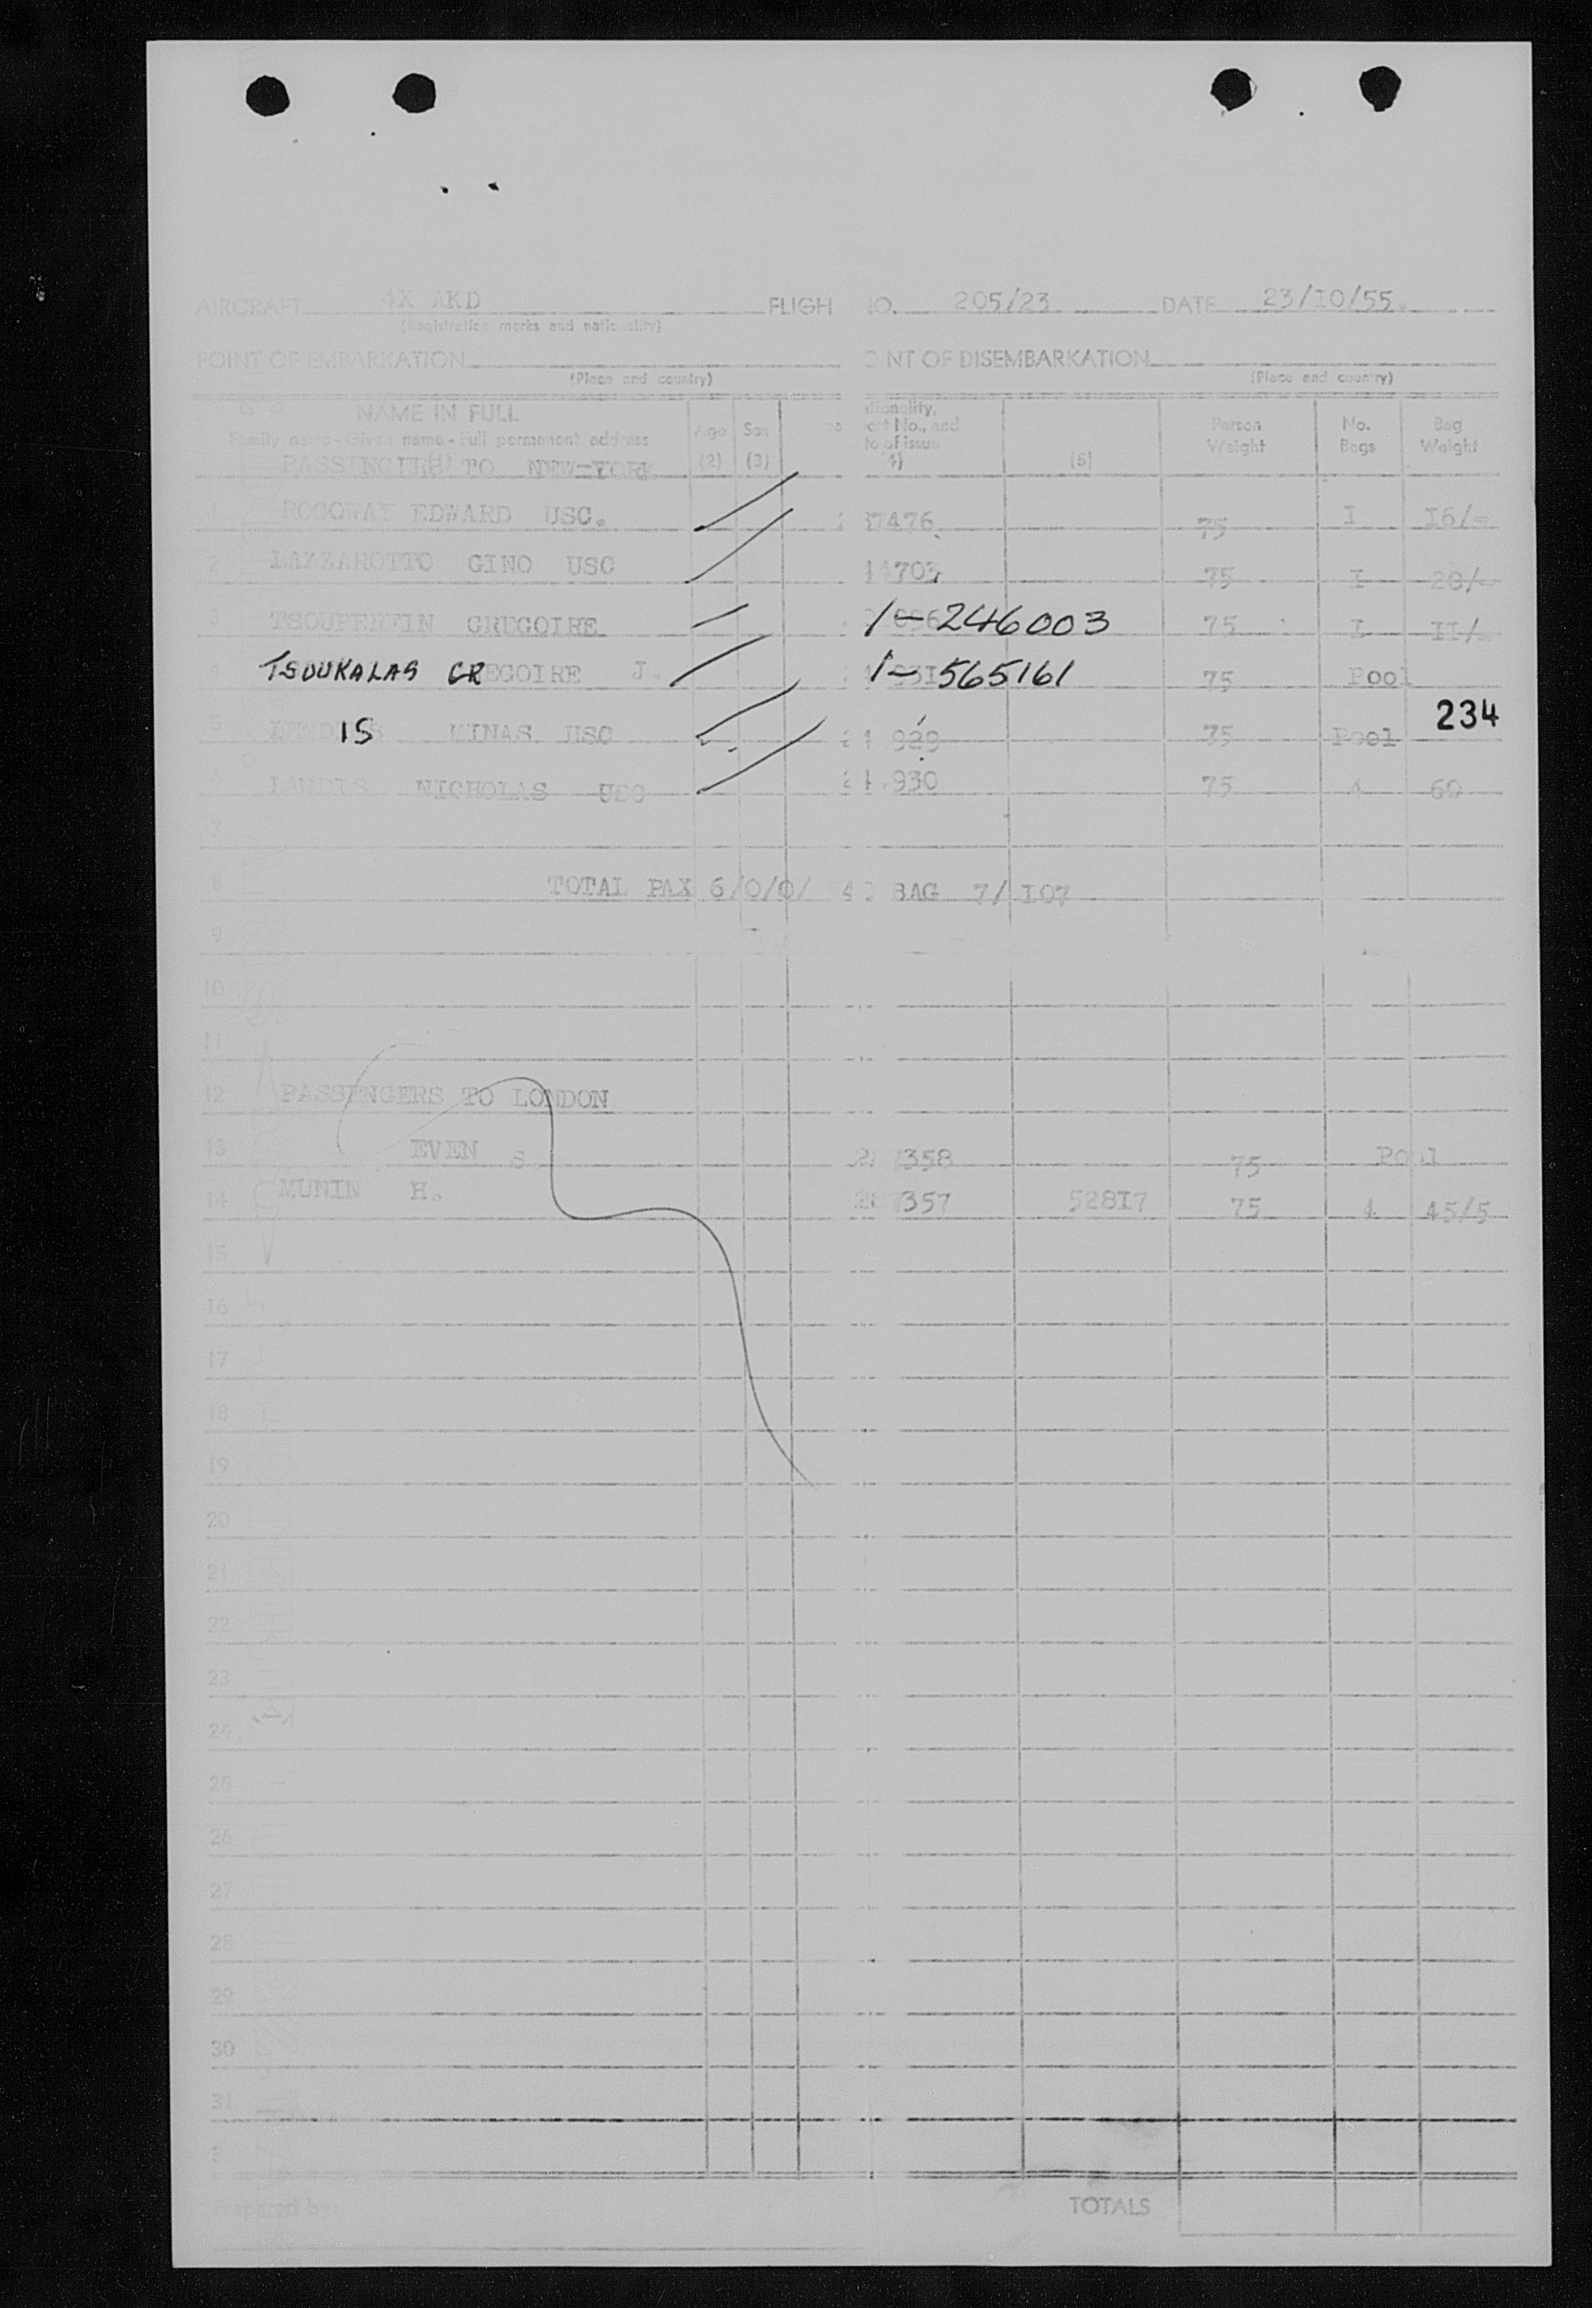 AIRCRAFT 4X AKD FLIGH NO. 205/23 DATE 23/I0/55.
(Registration marks and nationality)
POINT OF EMBARKATION INT OF DISEMBARKATION
(Place and country) (Place and country)
NAME IN FULL
Family name - Given name - Full permanent address Age Sex No., and Person No. Bag
of issue Weight Bags Weight
(2) (3) (4) (5)
TO NEW-YORK
1 ROGOWAY EDWARD USC. 37476 75 I I6/-
2 LAZZAROTTO GINO USC 703 75 I 20/-
3 GREGOIRE 1-246003 75 I II/-
4 TSOUKALAS GREGOIRE J. 1-565161 75 Pool
234
5 IS MINAS USC 929 75 Pool
6 LANDIS NICHOLAS USC 930 75 4 60
7
8 TOTAL PAX 6/0/0/ BAG 7/ I07
9
10
11
12 PASSENGERS TO LONDON
13 EVEN S 358 75 Pool
14 MUNIN H. 357 528I7 75 4 45/5
15
16
17
18
19
20
21
22
23
24
25
26
27
28
29
30
31
Prepared by: TOTALS